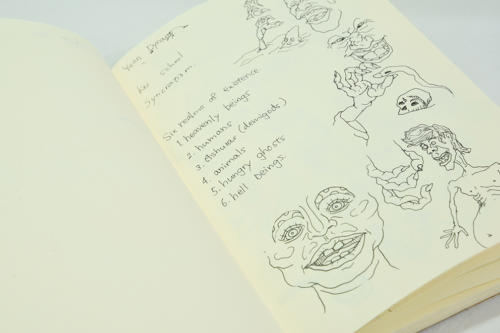 Yuan Dynasty
school
Syncretism.
Six realms of existence
1. heavenly beings
2. humans
3. Ashuras (demigods)
4. animals
5. hungry ghosts
6. hell beings.